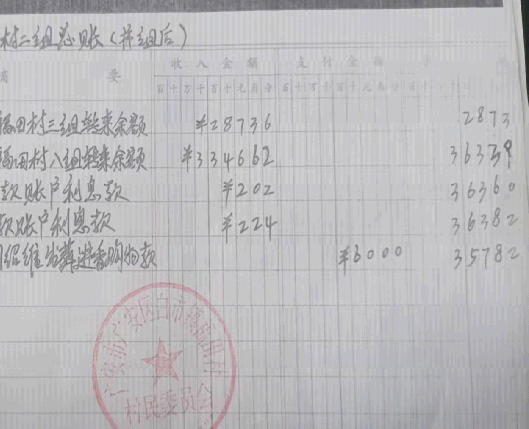 村二组总账（并组后）
摘 要 收入金额 支付金额
百十万千百十元角分 百十万千百十元角分
福田村三组转来余额 ¥28736 2873
福田村八组转来余额 ¥334662 36339
款账户利息款 ¥202 36360
款账户利息款 ¥224 36382
购物款 ¥6000 35782
广安市广安区白市镇福田村
村民委员会